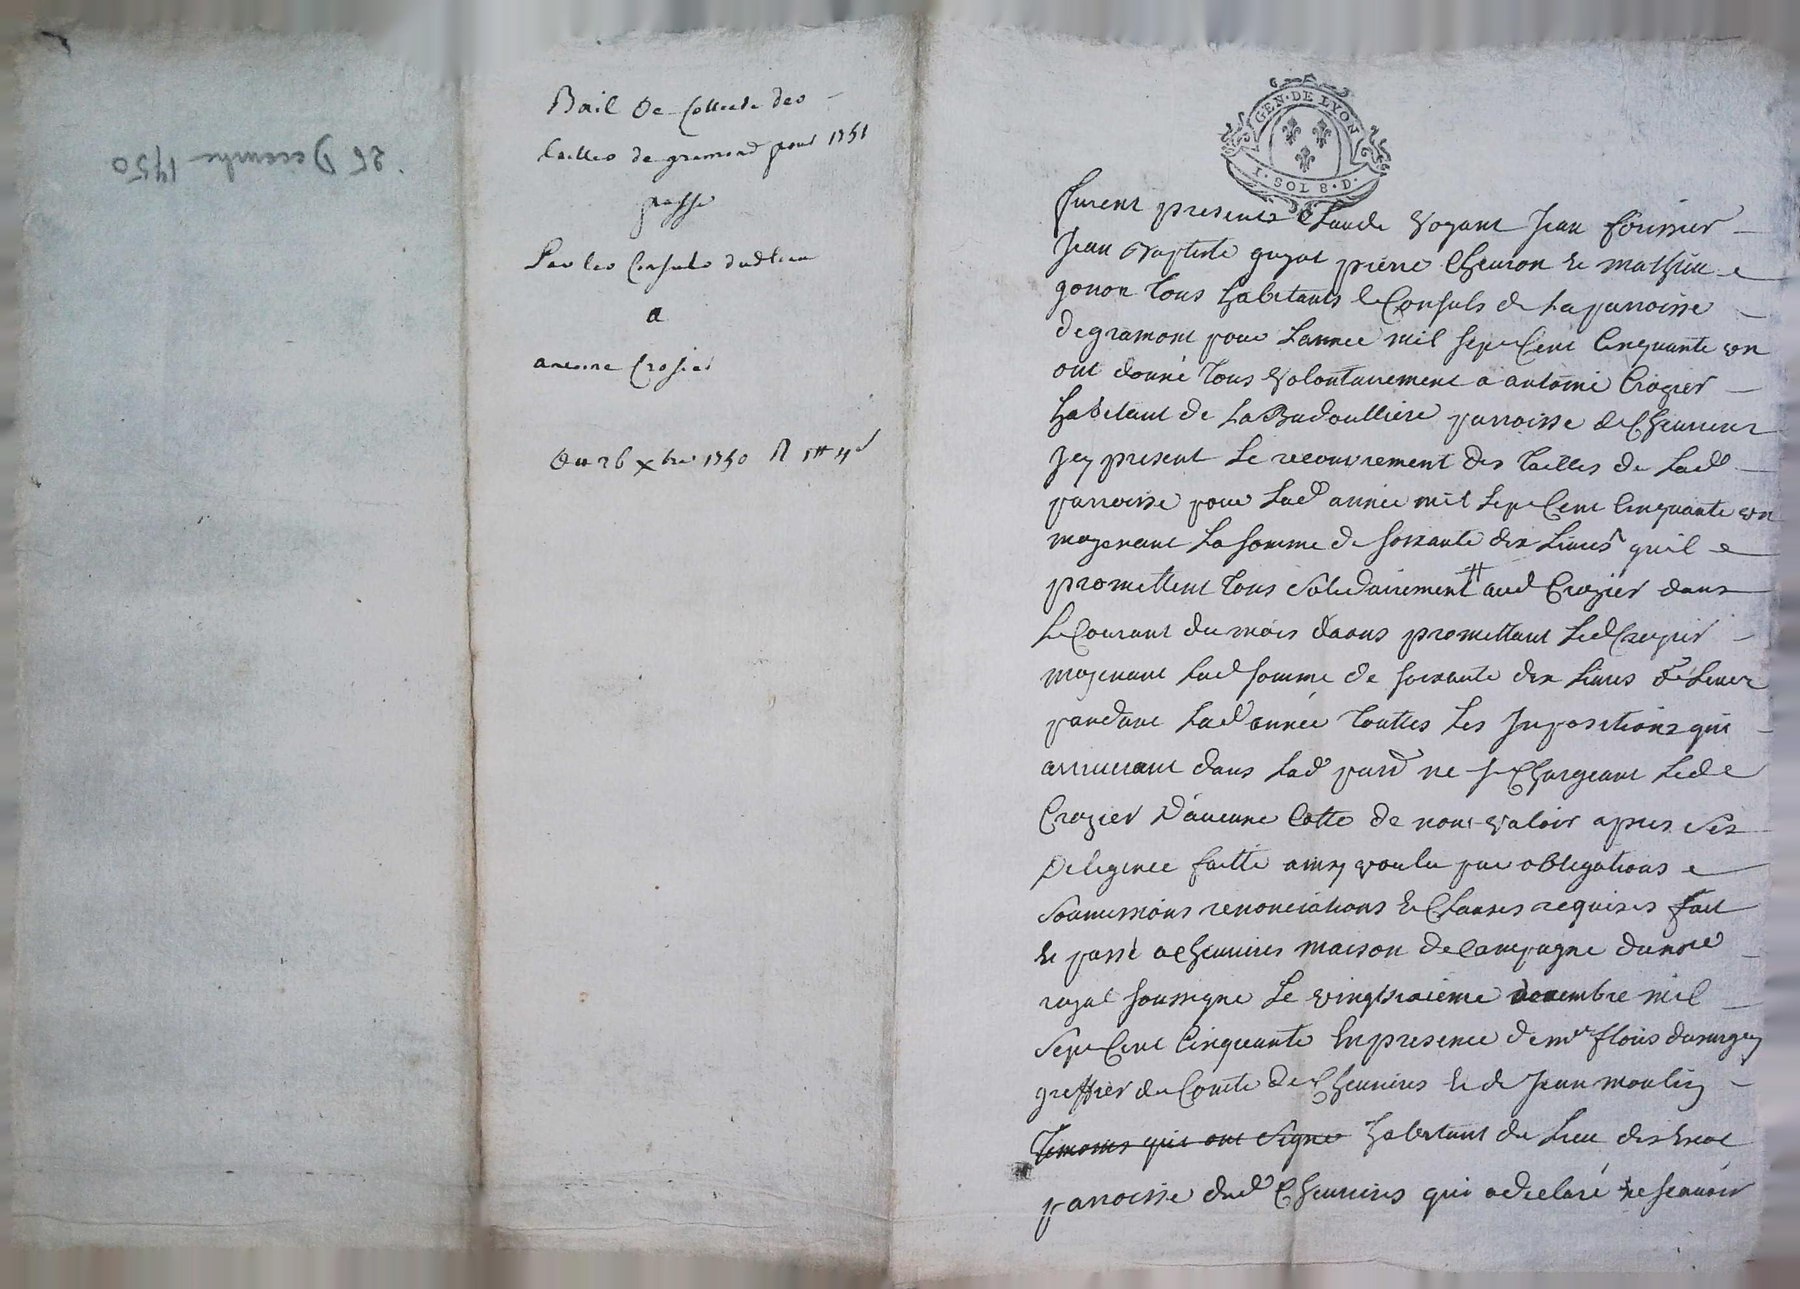 26 Decembre 1750
Bail de Collecte des
tailles de gramond pour 1751
passé
Par les Consuls dudt lieu
a
antoine Crosier
Du 26 xbre 1750
GEN · DE LYON
I · SOL 8 · D ·
furent presents Claude voyant Jean fournier
Jean Baptiste guyot pierre Cheuron et mathieu
gonon tous habitants et Consuls de La parroisse
de gramont pour Lannee mil sept Cent Cinquante un
ont donné tous volontairement a antoine Crozier
habitant de La Badoulliere parroisse de Cheurieres
Jcy present Le recouvrement des tailles de Lad
parroisse pour Lad année mil sept Cent Cinquante un
moyenant La somme de soixante dix Liures quil
promettent tous solidairement aud Crozier dans
Le Courant du mois daous promettant Led Crozier
moyenant Lad somme de soixante dix Liures de Leuer
pandant Lad année touttes Les Jnpositions qui
arriueront dans Lad parr ne se Chargeant Led
Crozier D'aucune Cotte de non valoir apres ses
Deligence faitte ainsy voulu par obligations
soumissions renonciations et Clauses requises fait
et passé a Cheurieres maison de Campagne du nore
royal soussigne Le vingt sixieme decembre mil
sept Cent Cinquante En presence de mr floris
greffier du Comte de Cheurieres et de Jean moulin
temoins qui ont signé habitant du Lieu
parroisse dud Cheurieres qui a declaré ne scauoir